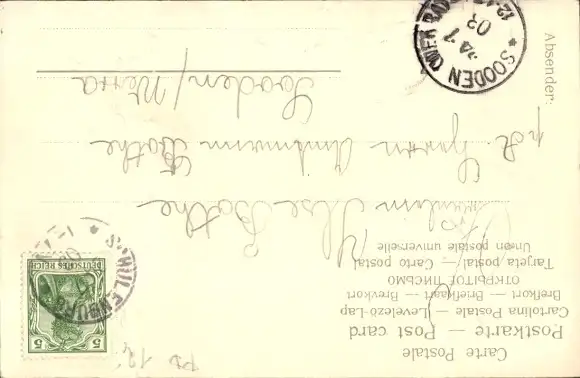 Carte Postale
Postkarte — Post card
Cartolina Postale (Levelező-Lap
Brefkort — Briefkaart — Brevkort
ОТКРЫТОЕ ПИСЬМО
Tarjeta postal — Carto postal
Union postale universelle
5
DEUTSCHES REICH
Fräulein Ilse Bothe
p. A. Herrn Amtmann Bothe
Sooden/Werra
Absender:
SOODEN (WERRA
24 7
03